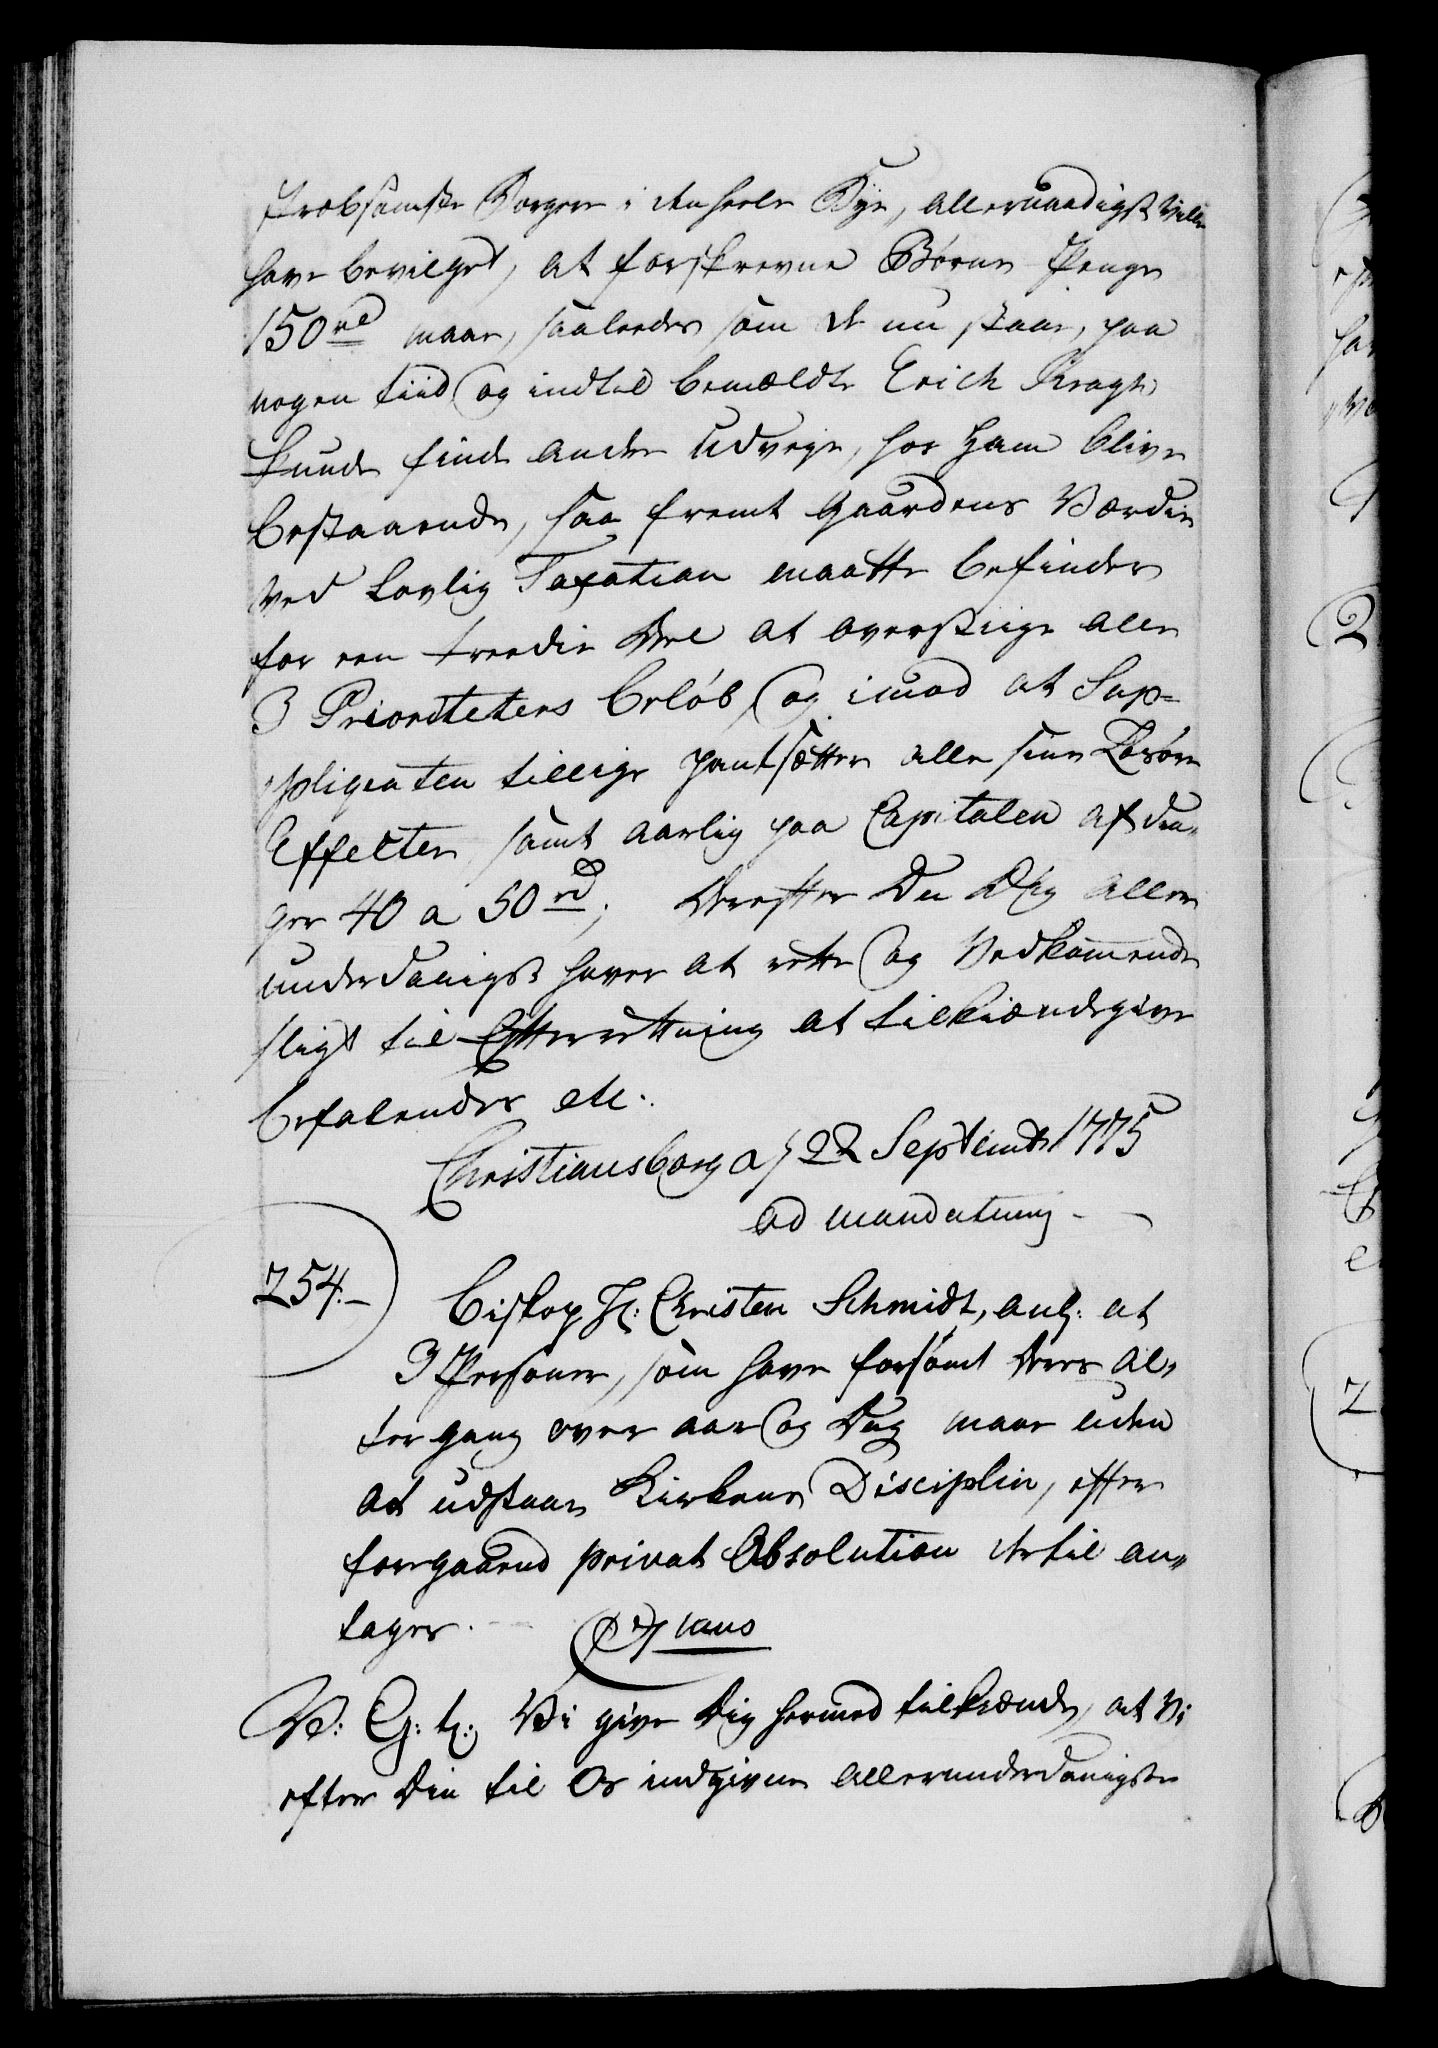 stræbsomste Borgere i den heele Bye, allernaadigst ville
have bevilget, at forskrevne Børne Penge
150 rd maae, saaledes som de nu staae, paa
nogen tiid og indtil bemældte Erich Kragh
kunde finde anden Udveye, hos ham blive
bestaaende, saa fremt Gaardens Værdie
ved Lovlig Taxation maatte befindes
for een treedie Deel at overstiige alle
3 Prioriteters beløb, og imod at Sup=
pliqanten tillige pantsætter alle sine Løsøre
Effecter, samt aarlig paa Capitalen afdra„
ger 40 a 50 rd; Derefter Du Dig aller
underdanigst haver at rette og Vedkommende
sligt til Efterretning at tilkiændegive
befalendes etc.
Christiansborg d/ 22 Septembr 1775
ad mandatum
254.
Biskop Hr: Christen Schmidt, anl: at
3 Personer, som have forsømt deres Al„
ter gang over aar og Dag maae uden
at udstaae Kirkens Disciplin, efter
foregaaend privat Absolution dertil an„
tages.
V: G: t: Vi give Dig hermed tilkiænde, at Vi
efter Din til Os indgivne allerunderdanigste